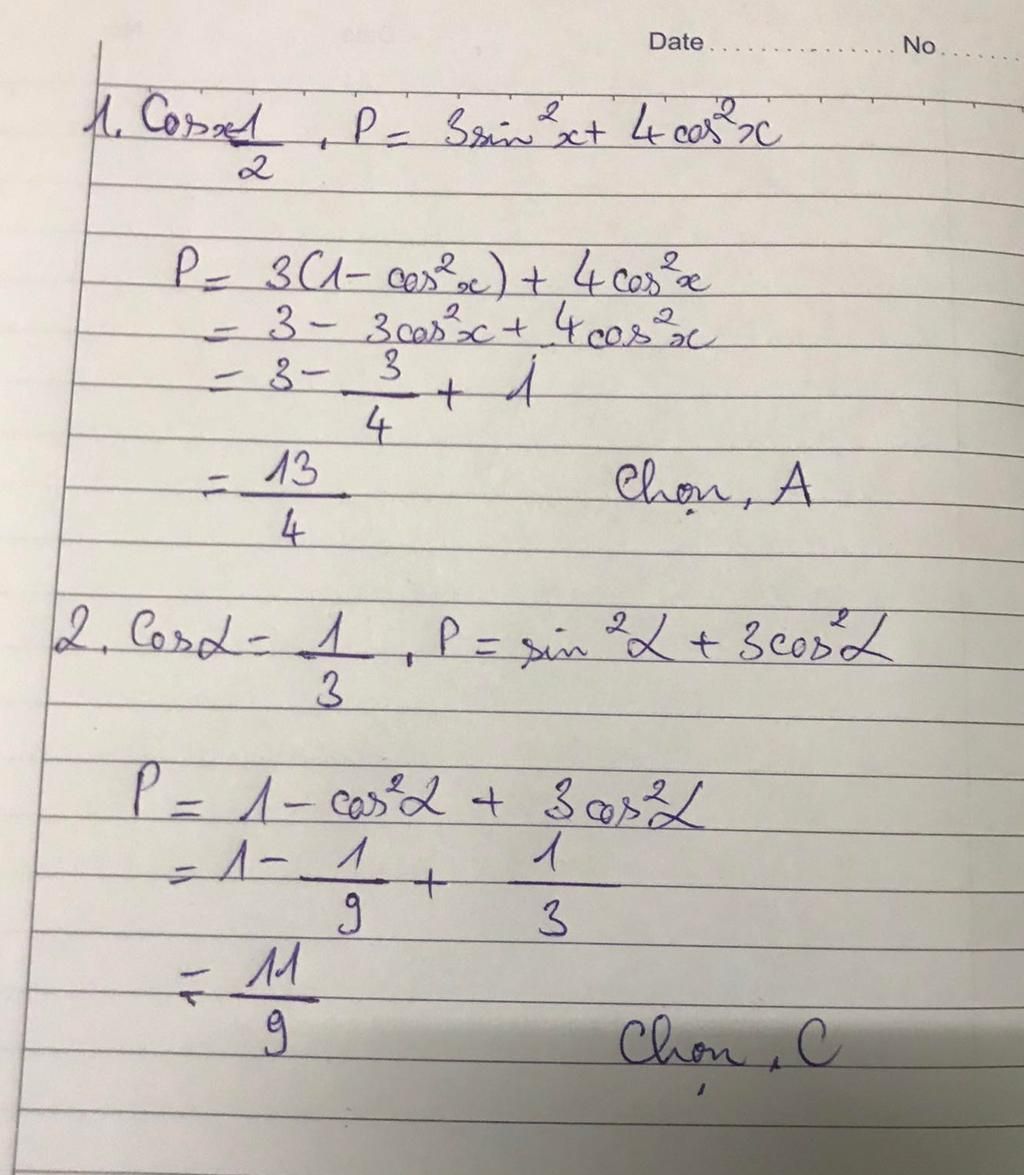 Date ............... No .......
1. Cosx = 1/2 , P = 3sin²x + 4cos²x
P = 3(1 - cos²x) + 4cos²x
= 3 - 3cos²x + 4cos²x
= 3 - 3/4 + 1
= 13/4 Chọn, A
2. Cosα = 1/3 , P = sin²α + 3cos²α
P = 1 - cos²α + 3cos²α
= 1 - 1/9 + 1/3
= 11/9 Chọn, C